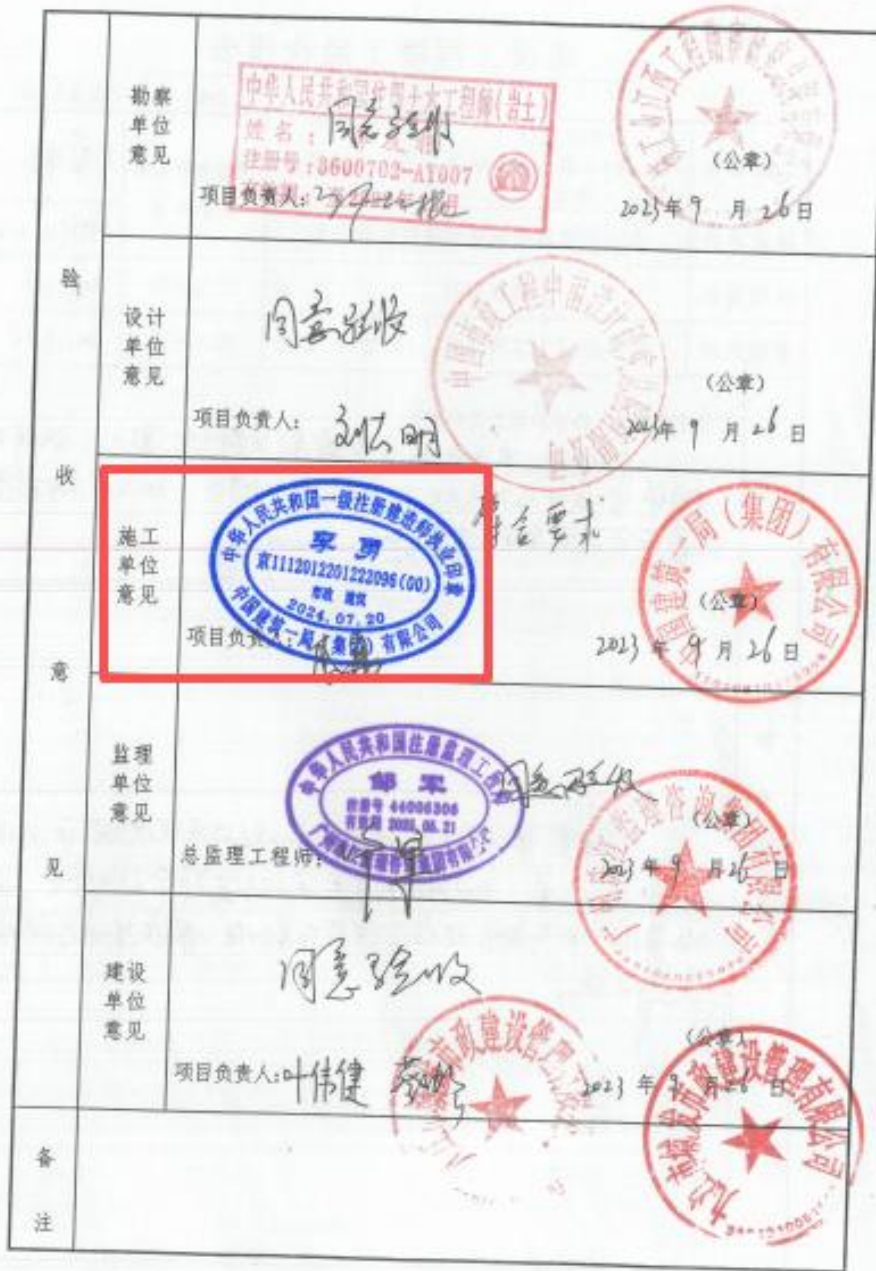 验收意见
勘察单位意见
中华人民共和国注册土木工程师(岩土)
姓名：
注册号：3600702-AY007
同意验收
项目负责人：
(公章)
2023年9月26日
设计单位意见
同意验收
项目负责人：
(公章)
2023年9月26日
施工单位意见
中华人民共和国一级注册建造师执业印章
李勇
京1112012201222096(00)
市政 建筑
2024.07.20
中国建筑一局(集团)有限公司
符合要求
项目负责人：
中国建筑一局(集团)有限公司
(公章)
2023年9月26日
监理单位意见
中华人民共和国注册监理工程师
邹军
注册号 44006306
同意验收
总监理工程师：
(公章)
2023年9月26日
建设单位意见
同意验收
项目负责人：叶伟健
(公章)
2023年9月26日
备注